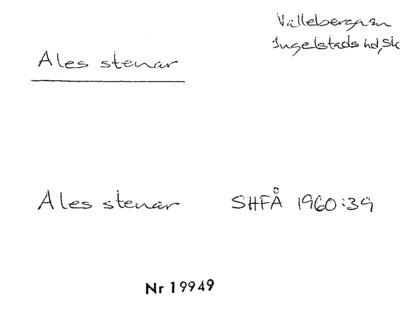 Ales stenar
Vallebergasn
Ingelstads hd, Sk
Ales stenar SHFÅ 1960:39
Nr 19949